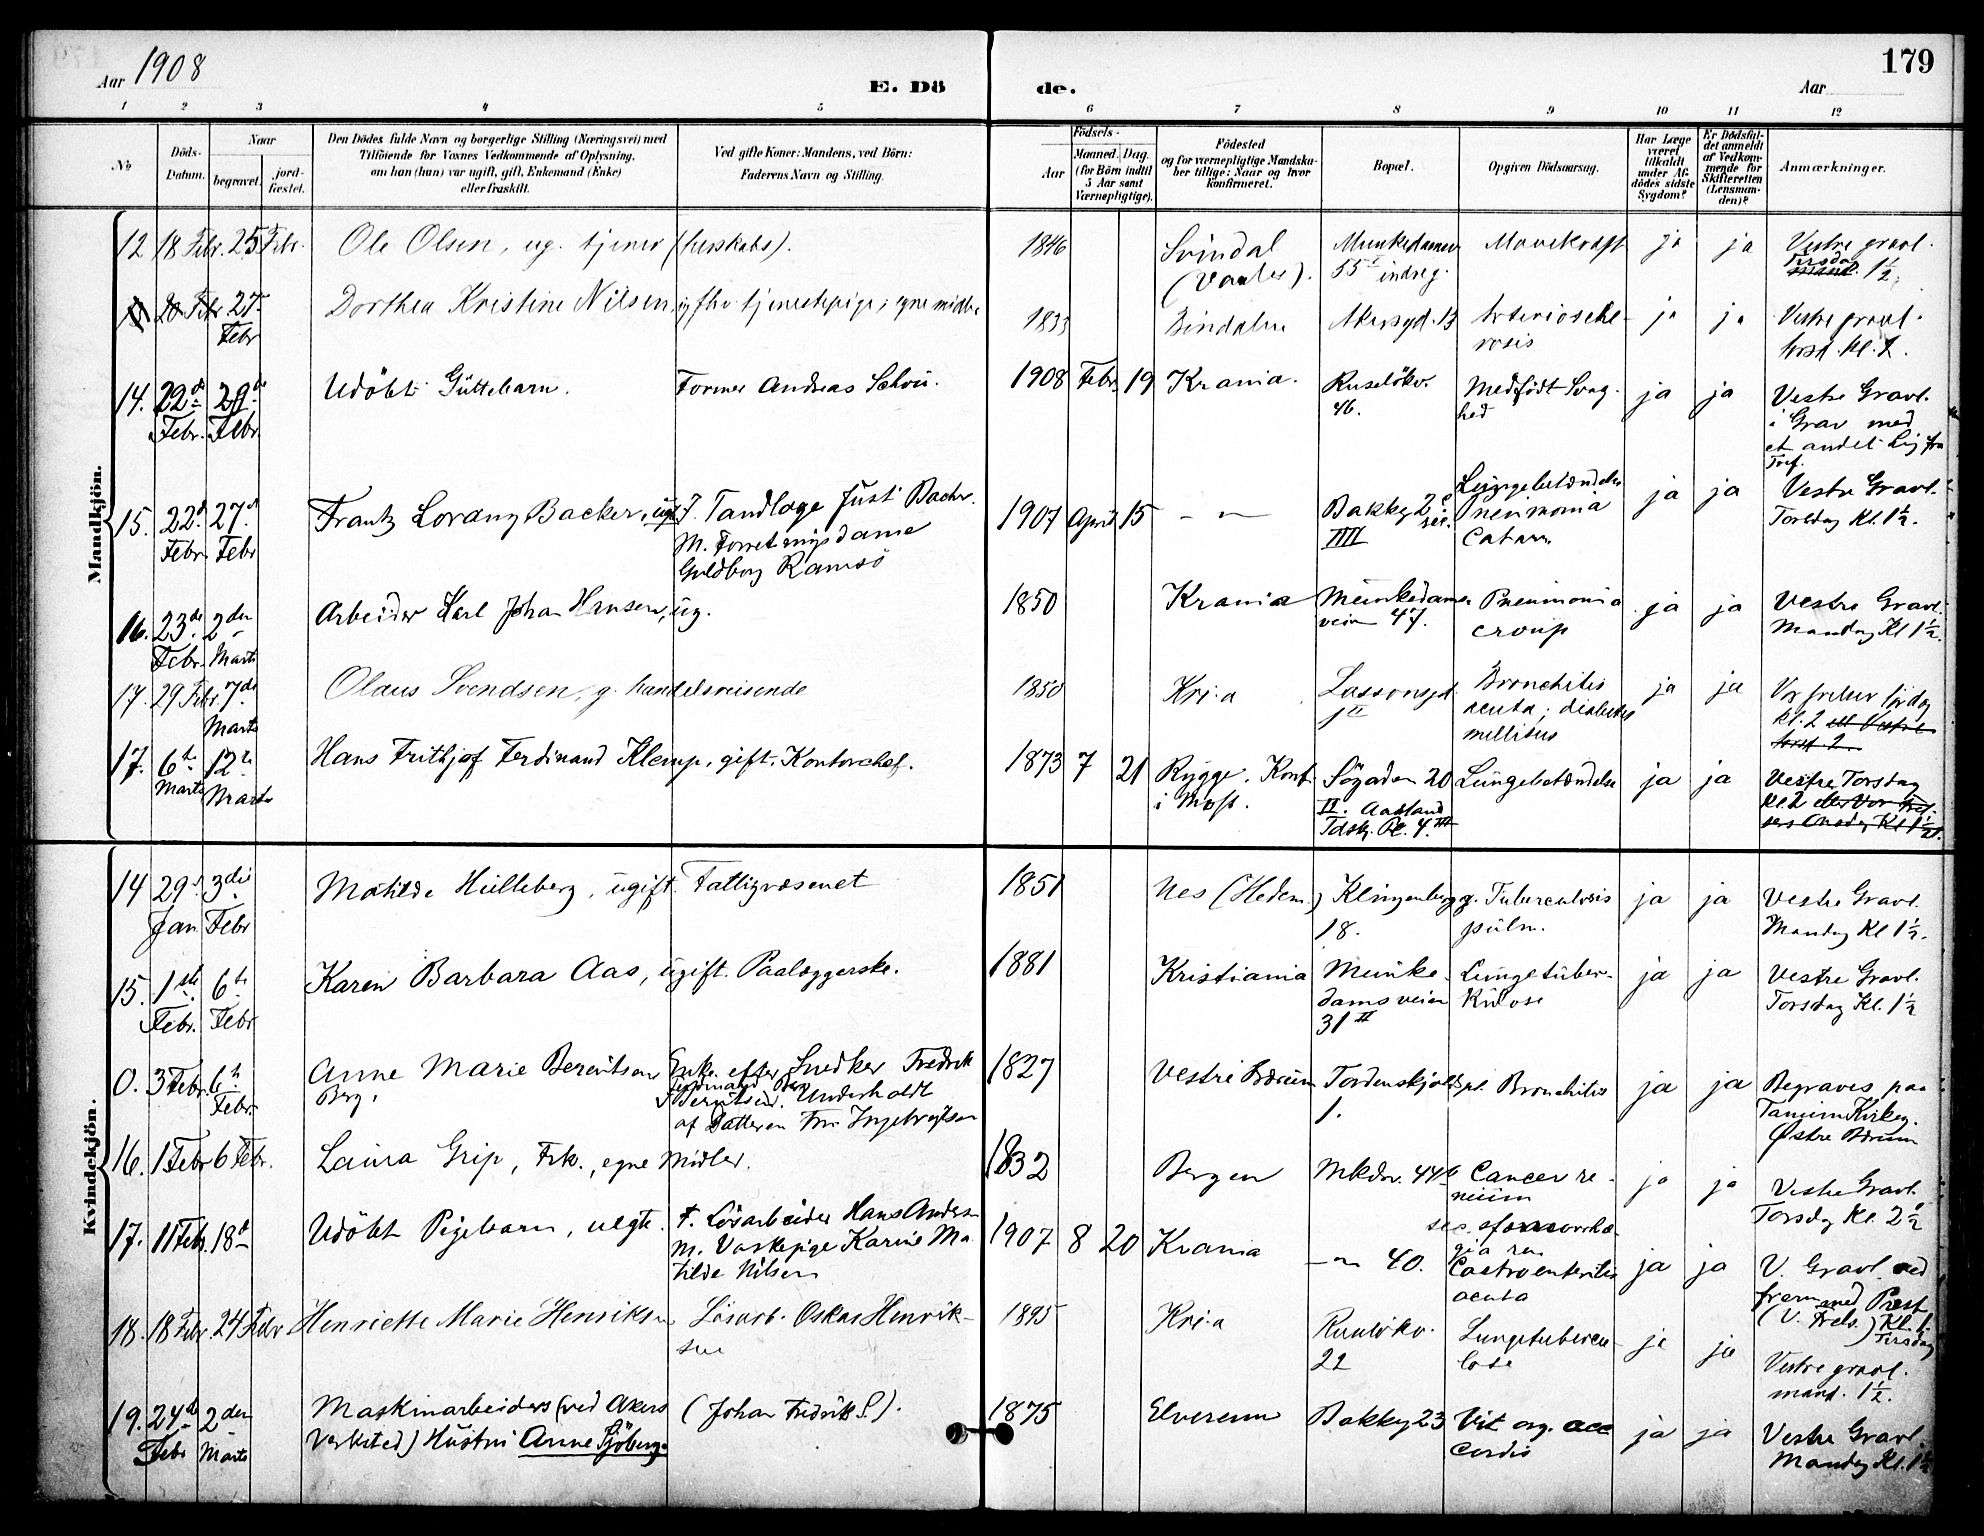 Aar 1908
E. Dö
de.
Aar
179
1 2 3 4 5 6 7 8 9 10 11 12
No
Döds-
Datum.
Naar
begravet.
jord-
fæstet.
Den Dödes fulde Navn og borgerlige Stilling (Næringsvei) med
Tilföiende for Voxnes Vedkommende af Oplysning,
om han (hun) var ugift, gift, Enkemand (Enke)
eller fraskilt.
Ved gifte Koner: Mandens, ved Börn:
Faderens Navn og Stilling.
Födsels-
Aar
Maaned.
Dag.
(for Börn indtil
5 Aar samt
Værnepligtige).
Födested
og for værnepligtige Mandska-
ber tillige: Naar og hvor
konfirmeret.
Bopæl.
Opgiven Dödsaarsag.
Har Læge
været
tilkaldt
under Af-
dödes sidste
Sygdom?
Er Dödsfal-
det anmeldt
af Vedkom-
mende for
Skifteretten
(Lensman-
den)?
Anmærkninger.
Mandkjön.
12 18 Febr. 25 Febr. Ole Olsen, ug. tjener (herskabs). 1846 Svindal Munkedamsv ja ja Vestre gravl.
(Vaaler). 55 indreg. Tirsdag 1½
20 Febr 27 Dorthea Kristine Nilsen, ug fhv. tjenestepige; egne midler 1833 Bindalen Akersgd. 13 Arterioscle- ja ja Vestre gravl.
Febr rosis
14. 22d 29de Udöbt Guttebarn. Former Andreas 1908 Febr. 19 Krania. Ruselökv. Medfödt Svag- ja ja Vestre Gravl.
Febr. Febr. 46. hed i Grav med
et andet Lig fra
15. 22d 27d Frantz Backer, F. Tandlæge Just Backer. 1907 April 15 Bakkeg 2 Lungebetændelse ja ja Vestre Gravl.
Febr. Febr M. Forretningsdame IIII Pneumonia Torsdag Kl. 1½.
Guldborg Ramsö Catarrh
16. 23de 2den Arbeider Karl Johan Hansen, ug. 1850 Krania Munkedams Pneumonia ja ja Vestre Gravl.
Febr. Marts veien 47. croup Mandag Kl 1½.
17. 29 Febr 7de Olaus Svendsen, g. handelsreisende 1850 Kri.a Lassonsgd. Bronchitis ja ja Vor frelser lördag
Marts 1 II acuta; diabetes kl. 2 Vestre
millitus
17. 6te 12te Hans Frithjof Ferdinand Klemp, gift, Kontorchef. 1873 7 21 Rygge. Konf. Sögaden 20 Lungebetændelse ja ja Vestre Torsdag
Marts Marts i Moss. II. Aasland kl. 2 eller Vor Frel-
sers Onsdag Kl 1½.
Kvindekjön.
14 29d 3die Matilde Hulleberg, ugift. Fattigvæsenet 1851 Nes (Hedem.) Klingenbergg. Tuberculosis ja ja Vestre Gravl.
Jan Febr 18. pulm. Mandag Kl 1½.
15. 1ste 6te Karen Barbara Aas, ugift. Paalæggerske. 1881 Kristiania Munke- Lungetuber- ja ja Vestre Gravl.
Febr. Febr damsveien kulose Torsdag Kl. 1½
31 II
0. 3 Febr. 6te Anne Marie Berentsen Enke efter Snedker Fredrik 1827 Vestre Bærum Tordenskjoldspl. Bronchitis ja ja Begraves paa
Febr. Berg, Ferdinand Berg 1. Tanum Kirkeg.
Berntsen. Underholdt Østre Bærum
af Datteren Fru Ingebrigtsen
16. 1 Febr 6 Febr. Laura Grip, Frk., egne Midler. 1832 Bergen Mkdv. 44 b Cancer re- ja ja Vestre Gravl.
nium Torsdag Kl. 2½
17. 11 Febr. 18d Udöbt Pigebarn, uegte. F. Lösarbeider Hans Anders 1907 8 20 Krania 40. ja ja V. Gravl. ned
M. Vaskepige Karine Ma- Gastroenteritis frem med Præst
tilde Nilsen acuta (V. Frels.) Kl. 1.
Tirsdag
18. 18 Febr 24 Febr Henriette Marie Henriksen Lösarb. Oskar Henrik- 1895 Kri.a Ruselökv. Lungetubercu- ja ja Vestre gravl.
sen 22 lose mand. 1½.
19. 24d 2den Maskinarbeiders (ved Akers (Johan Fredrik S.). 1875 Elverum Bakkeg 23 Vit. org. acc ja ja Vestre Gravl.
Febr Marts Verksted) Hustru Anne Sjöberg. Cordis Mandag Kl. 1½